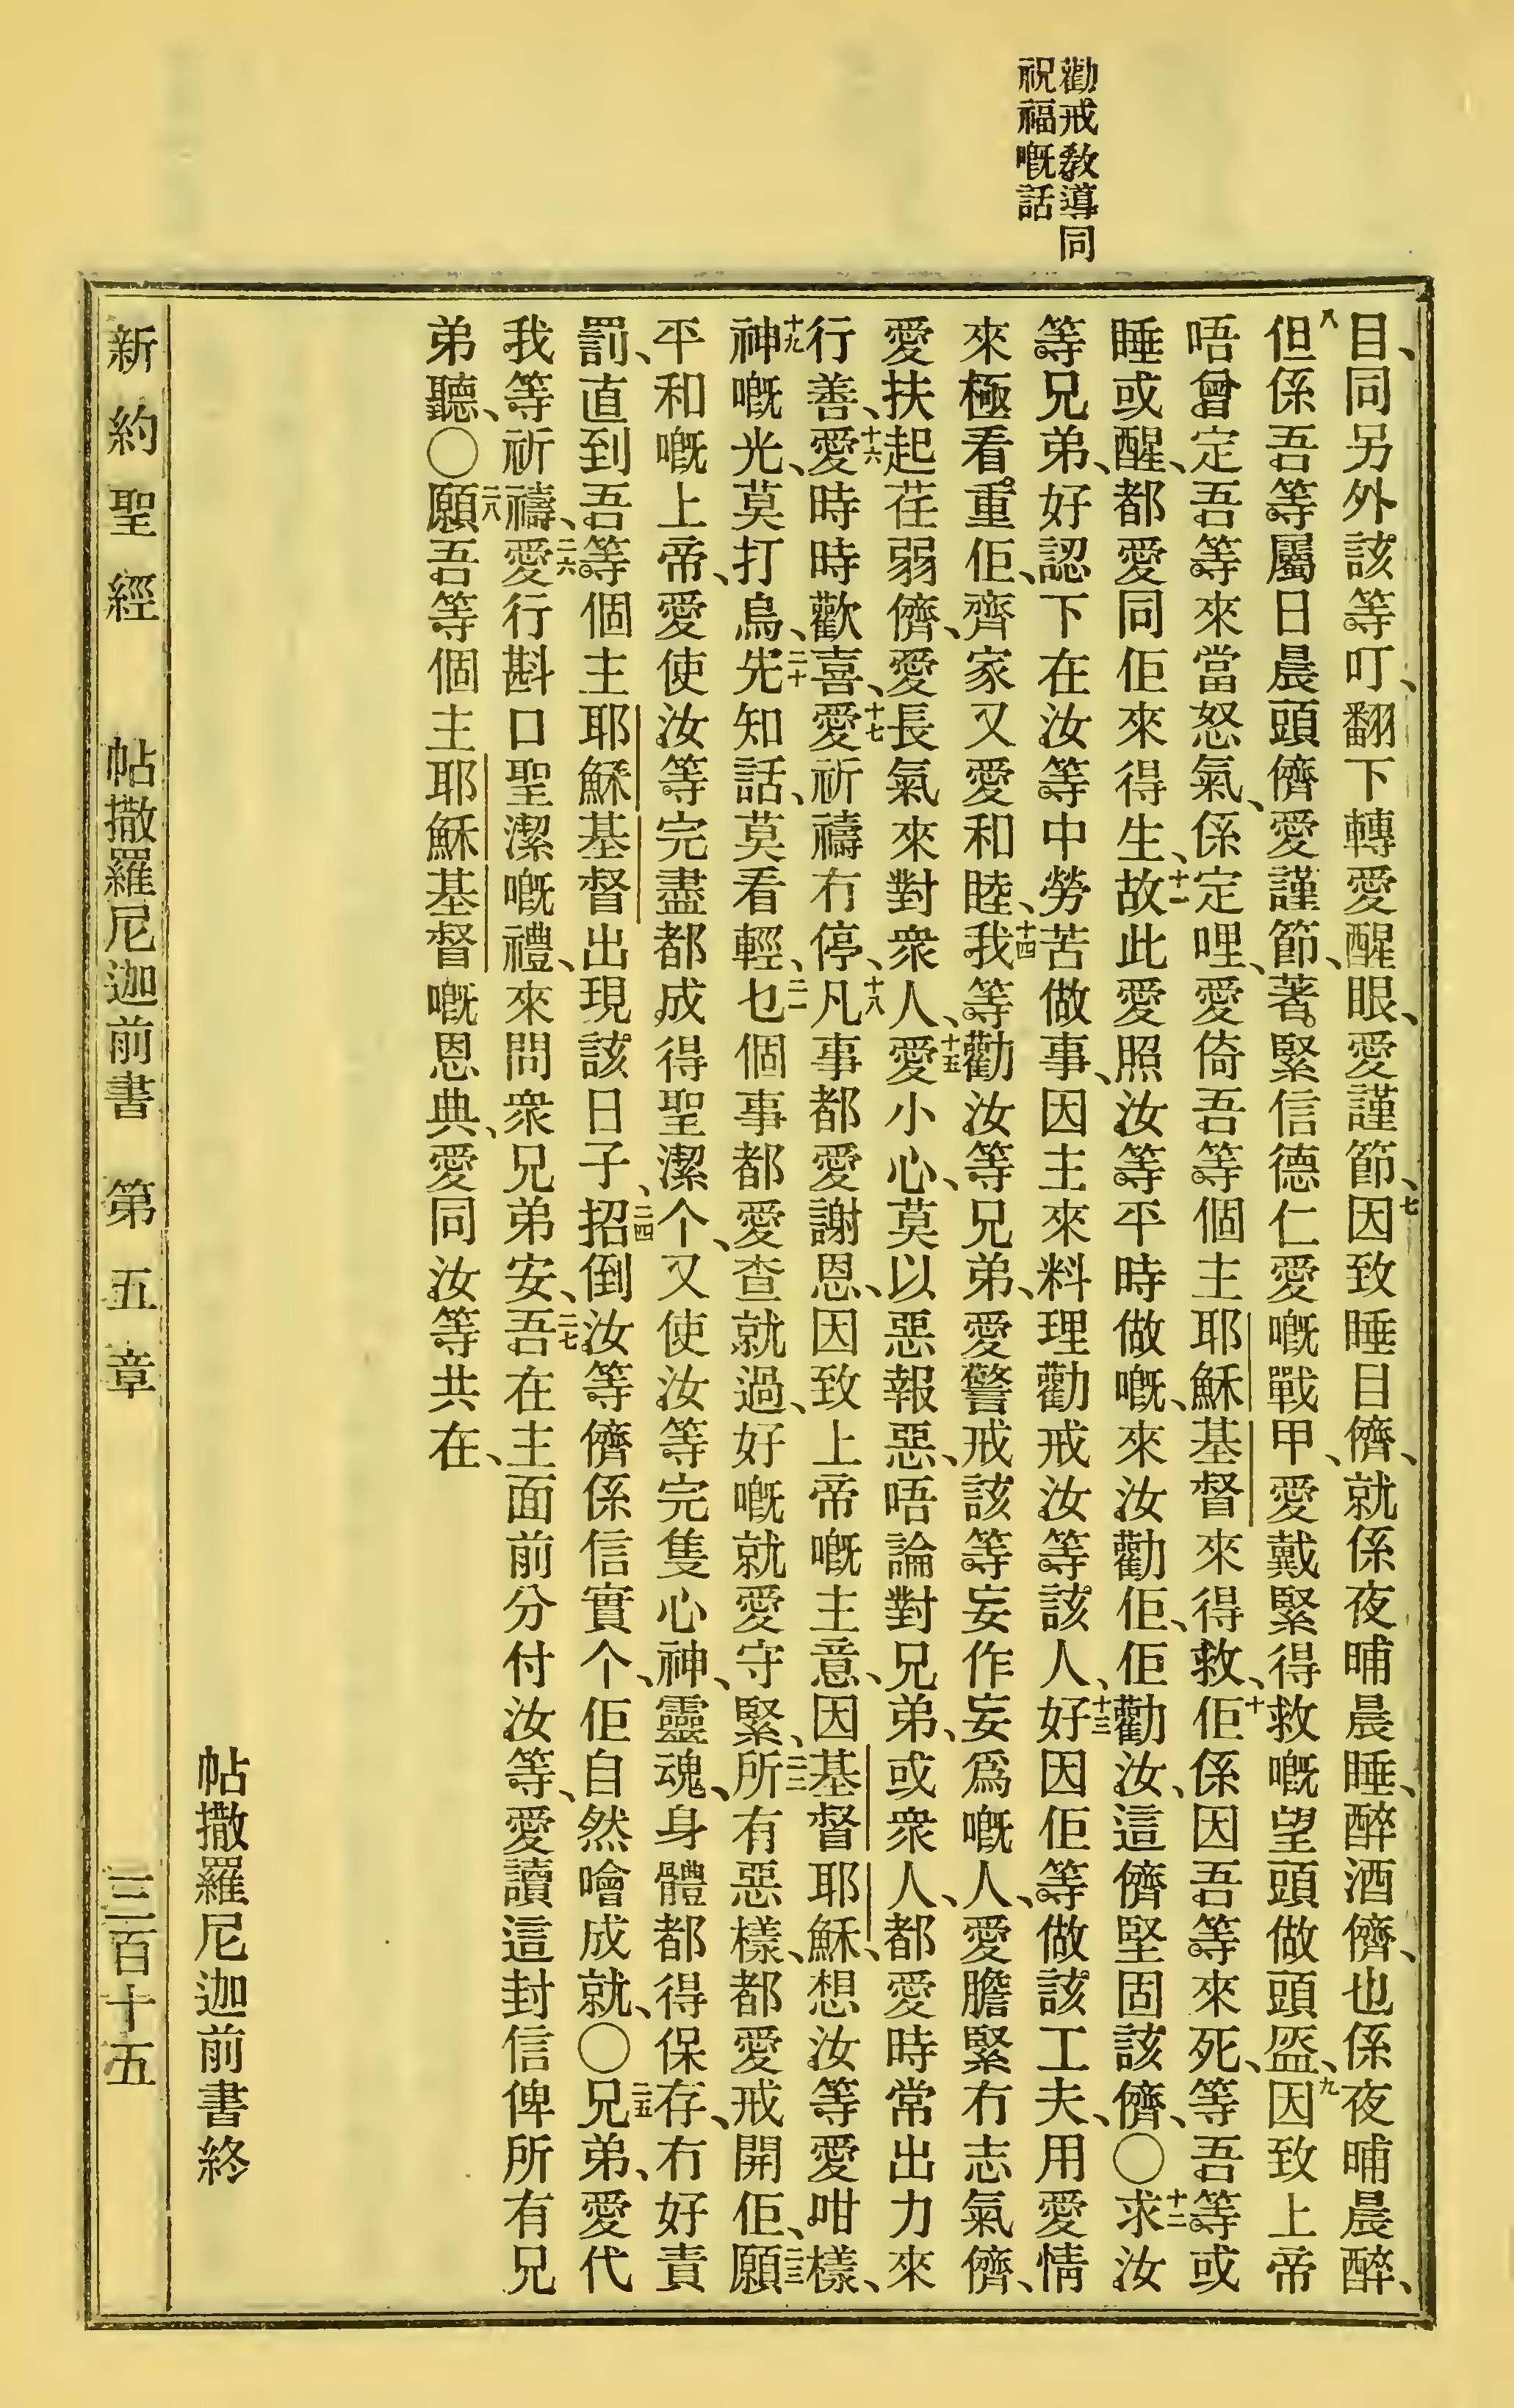 勸戒敎導同
祝福嘅話
目、同另外該等叮、翻下轉愛醒眼、愛謹節、七因致睡目儕、就係夜晡晨睡、醉酒儕、也係夜晡晨醉、
八但係吾等屬日晨頭儕愛謹節、著緊信德仁愛嘅戰甲、愛戴緊得救嘅望頭做頭盔、九因致上帝
唔曾定吾等來當怒氣、係定哩、愛倚吾等個主耶穌基督來得救、十佢係因吾等來死、等吾等或
睡或醒、都愛同佢來得生、十一故此愛照汝等平時做嘅、來汝勸佢、佢勸汝、這儕堅固該儕、〇十二求汝
等兄弟、好認下在汝等中勞苦做事、因主來料理勸戒汝等該人、十三好因佢等做該工夫、用愛情
來極看重佢、齊家又愛和睦、十四我等勸汝等兄弟、愛警戒該等妄作妄爲嘅人、愛膽緊冇志氣儕、
愛扶起荏弱儕、愛長氣來對衆人、十五愛小心、莫以惡報惡、唔論對兄弟、或衆人、都愛時常出力來
行善、十六愛時時歡喜、十七愛祈禱冇停、十八凡事都愛謝恩、因致上帝嘅主意、因基督耶穌、想汝等愛咁樣、
十九神嘅光、莫打烏、二十先知話、莫看輕、二一乜個事都愛查就過、好嘅就愛守緊、二二所有惡樣、都愛戒開佢、二三願
平和嘅上帝、愛使汝等完盡都成得聖潔个、又使汝等完隻心神、靈魂、身體都得保存、冇好責
罰、直到吾等個主耶穌基督出現該日子、二四招倒汝等儕係信實个、佢自然噲成就、〇二五兄弟、愛代
我等祈禱、二六愛行斟口聖潔嘅禮、來問衆兄弟安、二七吾在主面前分付汝等、愛讀這封信俾所有兄
弟聽、〇二八願吾等個主耶穌基督嘅恩典、愛同汝等共在、
帖撒羅尼迦前書終
新約聖經　帖撒羅尼迦前書　第五章　三百十五